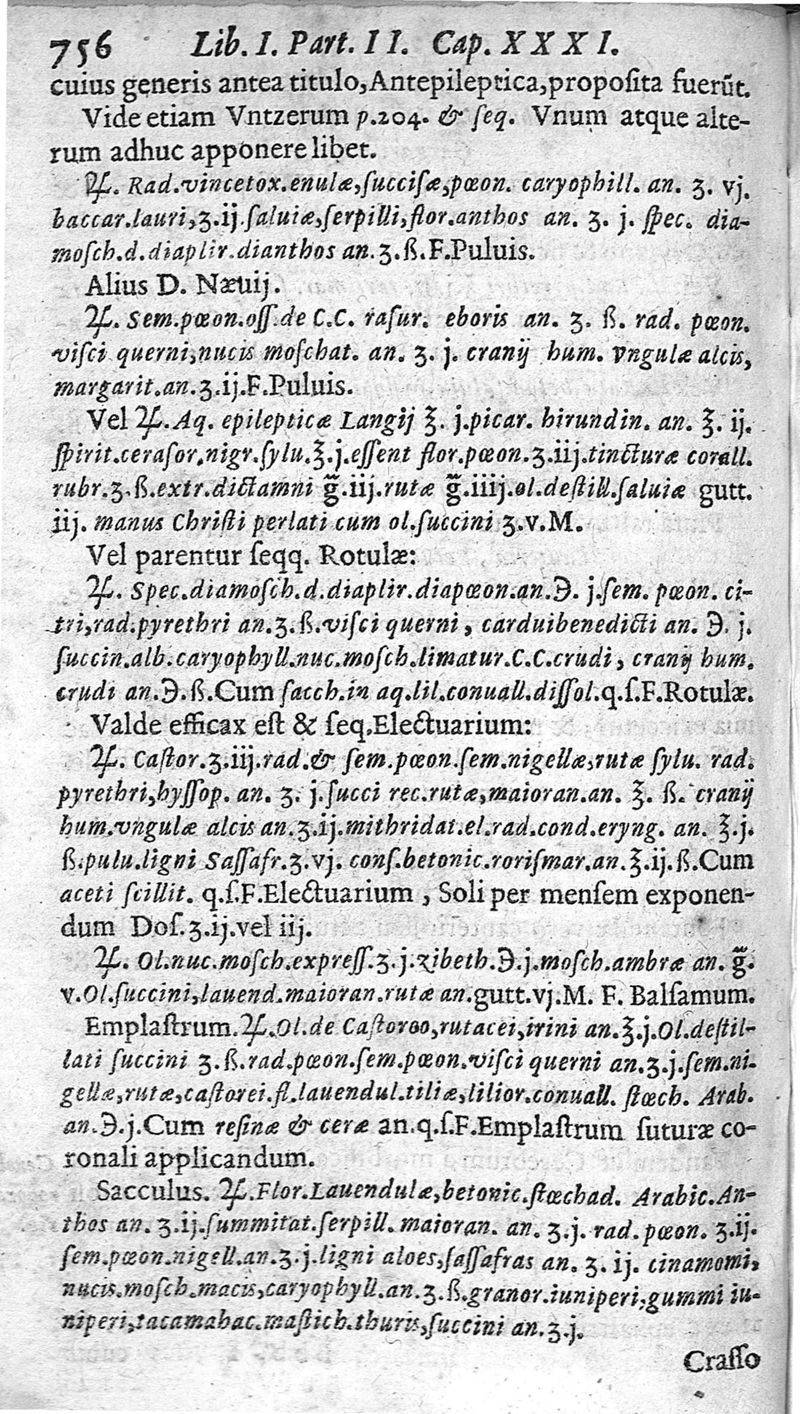 756 Lib. I. Part. II. Cap. XXXI.
cuius generis antea titulo, Antepileptica, propoſita fuerũt.
Vide etiam Vntzerum p.204. & ſeq. Vnum atque alte-
rum adhuc apponere libet.
℞. Rad.vincetox.enulæ,ſucciſæ,pœon. caryophill. an. ʒ. vj.
baccar.lauri,ʒ.ij.ſaluiæ,ſerpilli,flor.anthos an. ʒ. j. ſpec. dia-
moſch.d.diaplir.dianthos an.ʒ.ß.F.Puluis.
Alius D. Næuij.
℞. Sem.pœon.oſſ.de C.C. raſur. eboris an. ʒ. ß. rad. pœon.
viſci querni,nucis moſchat. an. ʒ. j. cranij hum. vngulæ alcis,
margarit.an.ʒ.ij.F.Puluis.
Vel ℞.Aq. epilepticæ Langij ℥. j.picar. hirundin. an. ℥. ij.
ſpirit.ceraſor.nigr.ſylu.℥.j.eſſent flor.pœon.ʒ.iij.tincturæ corall.
rubr.ʒ.ß.extr.dictamni g̅.iij.rutæ g̅.iiij.ol.deſtill.ſaluiæ gutt.
iij. manus Chriſti perlati cum ol.ſuccini ʒ.v.M.
Vel parentur ſeqq. Rotulæ:
℞. Spec.diamoſch.d.diaplir.diapœon.an.℈. j.ſem. pœon. ci-
tri,rad.pyrethri an.ʒ.ß.viſci querni, carduibenedicti an. ℈. j.
ſuccin.alb.caryophyll.nuc.moſch.limatur.C.C.crudi, cranij hum.
crudi an.℈.ß.Cum ſacch.in aq.lil.conuall.diſſol.q.ſ.F.Rotulæ.
Valde efficax eſt & ſeq.Electuarium:
℞. Caſtor.ʒ.iij.rad.& ſem.pœon.ſem.nigellæ,rutæ ſylu. rad.
pyrethri,hyſſop. an. ʒ. j.ſucci rec.rutæ,maioran.an. ℥. ß. cranij
hum.vngulæ alcis an.ʒ.ij.mithridat.el.rad.cond.eryng. an. ℥.j.
ß.pulu.ligni Saſſafr.ʒ.vj. conſ.betonic.roriſmar.an.℥.ij.ß.Cum
aceti ſcillit. q.ſ.F.Electuarium, Soli per menſem exponen-
dum Doſ.ʒ.ij.vel iij.
℞. Ol.nuc.moſch.expreſſ.ʒ.j.zibeth.℈.j.moſch.ambræ an. g̅.
v.Ol.ſuccini,lauend.maioran.rutæ an.gutt.vj.M. F. Balſamum.
Emplaſtrum.℞.Ol.de Caſtoreo,rutacei,irini an.℥.j.Ol.deſtil-
lati ſuccini ʒ.ß.rad.pœon.ſem.pœon.viſci querni an.ʒ.j.ſem.ni-
gellæ,rutæ,caſtorei.fl.lauendul.tiliæ,lilior.conuall. ſtœch. Arab.
an.℈.j.Cum reſinæ & ceræ an.q.ſ.F.Emplaſtrum ſuturæ co-
ronali applicandum.
Sacculus. ℞.Flor.Lauendulæ,betonic.ſtœchad. Arabic.An-
thos an. ʒ.ij.ſummitat.ſerpill. maioran. an. ʒ.j. rad.pœon. ʒ.ij.
ſem.pœon.nigell.an.ʒ.j.ligni aloes,ſaſſafras an. ʒ. ij. cinamomi,
nucis.moſch.macis,caryophyll.an.ʒ.ß.granor.iuniperi,gummi iu-
niperi,tacamahac.maſtich.thuris,ſuccini an.ʒ.j.
Craſſo